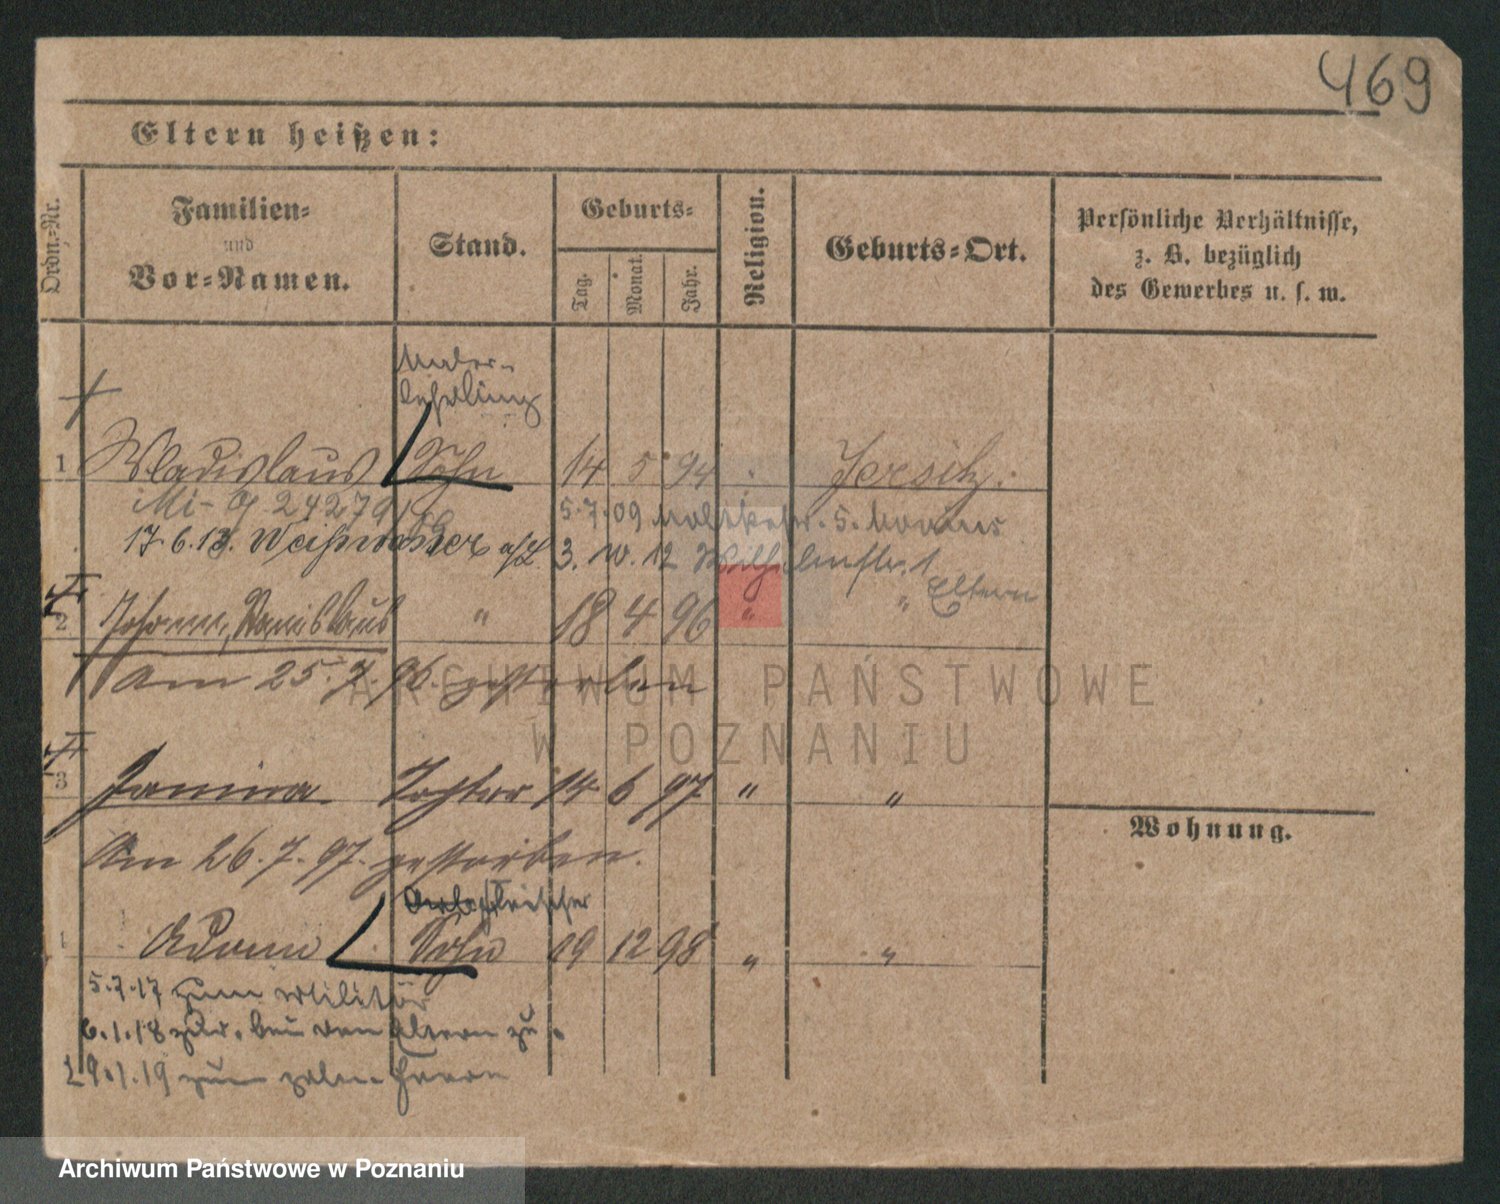 469
Eltern heißen:
Ordn.-Nr.
Familien-
und
Vor-Namen.
Stand.
Geburts-
Tag.
Monat.
Jahr.
Religion.
Geburts-Ort.
Persönliche Verhältnisse,
z. B. bezüglich
des Gewerbes u. s. w.
Maler-
lehrling
1 Wladislaus Sohn 14 5 94 " Jersitz.
5.7.09 5.
17.6.13. Weißwasser a/L 3. 10. 12 Wilhelmstr. 1
Eltern
2 Johann, Stanislaus " 18 4 96 " "
Am 25.7.96. gestorben
3 Janina Tochter 14 6 97 " "
Wohnung.
Am 26.7.97. gestorben.
4 Adam Sohn 19 12 98 " "
5.7.17 zum Militär
6.1.18 zur. bei den Eltern zu
29.1.19 zum poln. Heere
ARCHIWUM PAŃSTWOWE
W POZNANIU
Archiwum Państwowe w Poznaniu